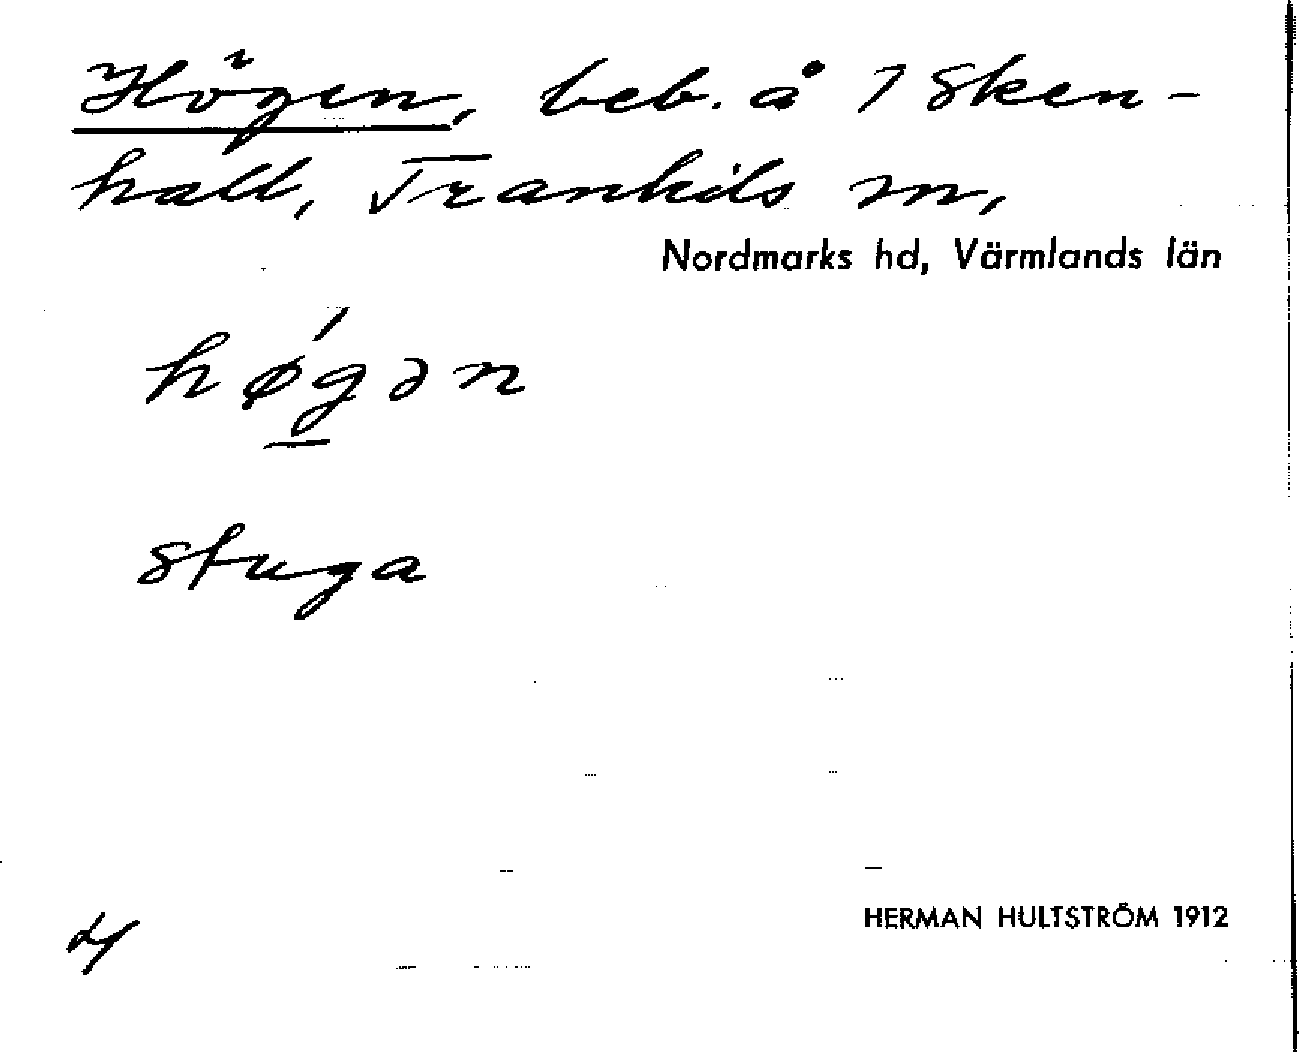 Högen, beb. å 1 Sken-
hall, Trankils sn,
Nordmarks hd, Värmlands län
hǿgən
stuga
HERMAN HULTSTRÖM 1912
4